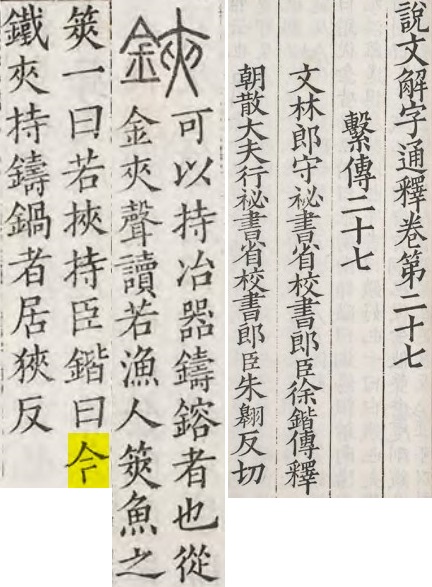 說文解字通釋卷第二十七
繫傳二十七
文林郎守祕書省校書郎臣徐鍇傳釋
朝散大夫行祕書省校書郎臣朱翺反切
鋏可以持冶器鑄鎔者也從
金夾聲讀若漁人筴魚之
筴一曰若挾持臣鍇曰今
鐵夾持鑄鍋者居狹反